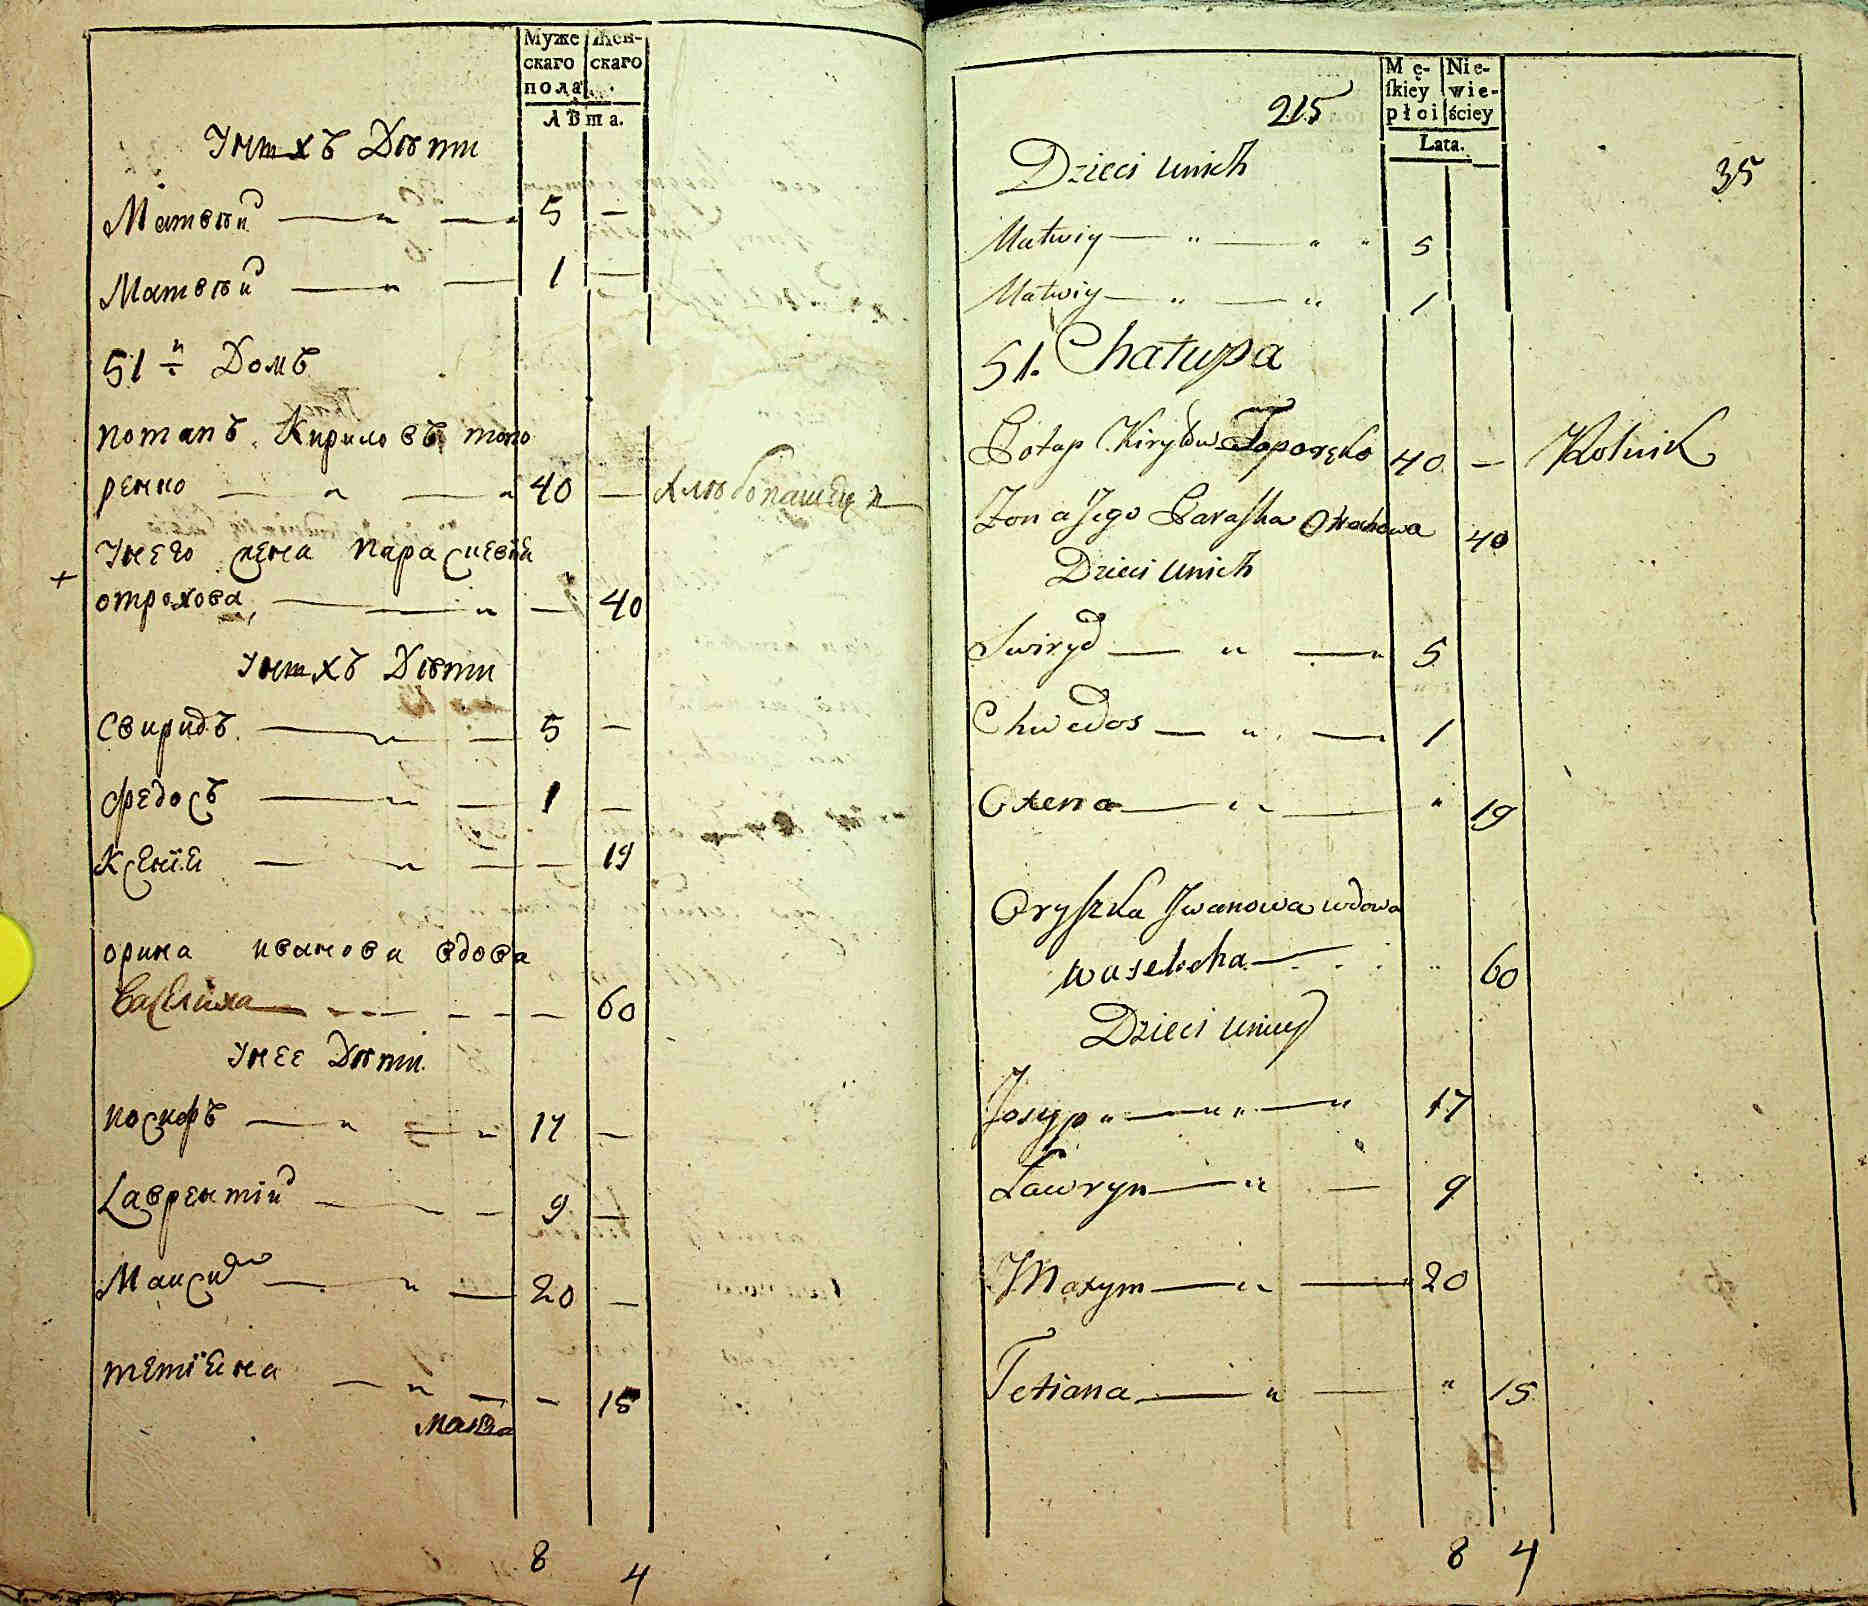 Муже
скаго
пола
Жен-
скаго
Лѣта.
Унихъ Дѣти
Матвѣй 5 —
Матвѣй 1 —
51й Домъ
потапъ Кириловъ топо
ренко 40 — хлѣбопашецъ
Унего жена параскевія
+ отрохова — 40
Унихъ Дѣти
Свиридъ 5 —
федосъ 1 —
Ксенія — 19
орина иванова вдова
Василиха — 60
Унее Дѣти
иосифъ 17 —
Лаврентій 9 —
Максимъ 20 —
тетіяна — 15
8 4
Mę-
ſkiey
płci
Nie-
wie-
ściey
Lata.
215
35
Dzieci unich
Matwiy 5
Matwiy 1
51. Chałupa
Potap Kiryłow Toporęko 40 — Rolnik
Zona Jego Paraſka Otrochowa 40
Dzieci unich
Swiryd 5
Chwedos 1
Oxena 19
Oryſzka Jwanowa wdowa
Waselicha 60
Dzieci uniey
Josyp 17
Ławryn 9
Maxym 20
Tetiana 15
8 4